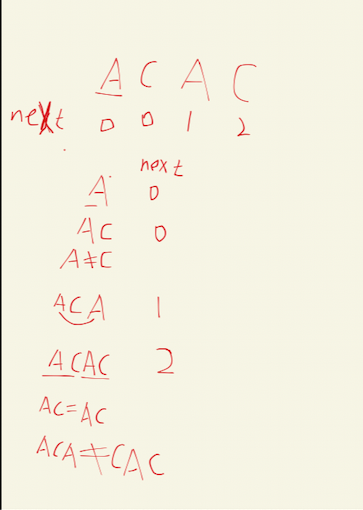 A C A C
next 0 0 1 2
next
A 0
AC 0
A≠C
ACA 1
ACAC 2
AC=AC
ACA≠CAC